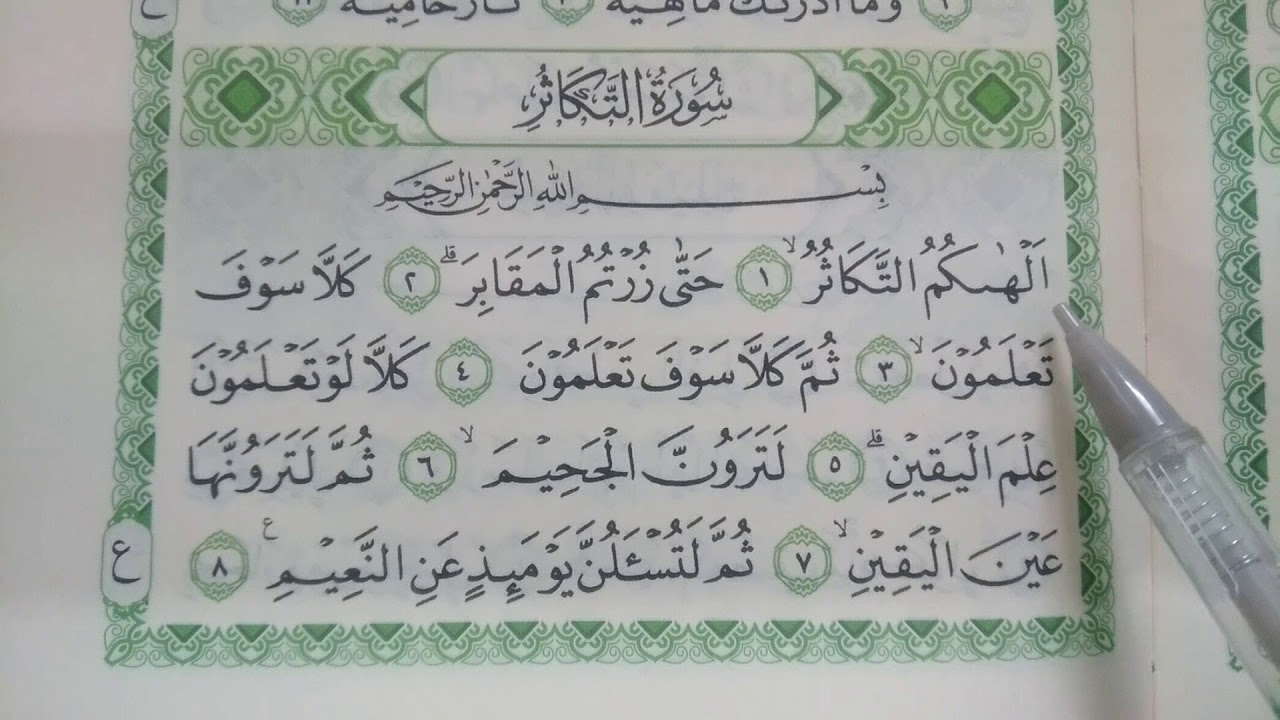 وما ادرىك ماهية ١٠ نار حامية ١١
سُوْرَةُ التَّكَاثُرِ
بِسْــــــمِ اللّٰهِ الرَّحْمٰنِ الرَّحِيْمِ
اَلْهٰىكُمُ التَّكَاثُرُۙ ١ حَتّٰى زُرْتُمُ الْمَقَابِرَۗ ٢ كَلَّا سَوْفَ
تَعْلَمُوْنَۙ ٣ ثُمَّ كَلَّا سَوْفَ تَعْلَمُوْنَ ٤ كَلَّا لَوْ تَعْلَمُوْنَ
عِلْمَ الْيَقِيْنِۗ ٥ لَتَرَوُنَّ الْجَحِيْمَۙ ٦ ثُمَّ لَتَرَوُنَّهَا
عَيْنَ الْيَقِيْنِۙ ٧ ثُمَّ لَتُسْـَٔلُنَّ يَوْمَىِٕذٍ عَنِ النَّعِيْمِ ࣖ ٨
ع